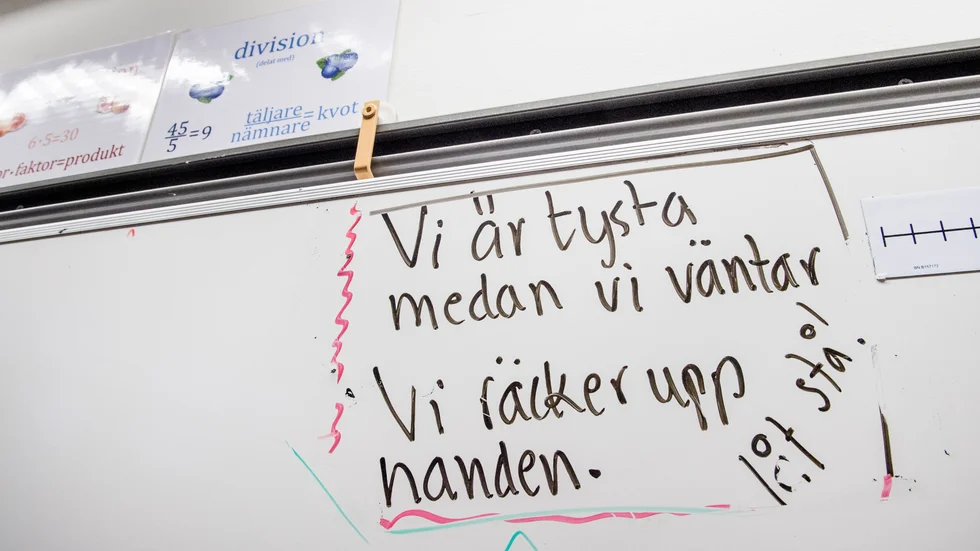 6·5=30
faktor=produkt
division
(delat med)
45/5=9
täljare/nämnare=kvot
Vi är tysta
medan vi väntar
Vi räcker upp
handen.
låt stå!